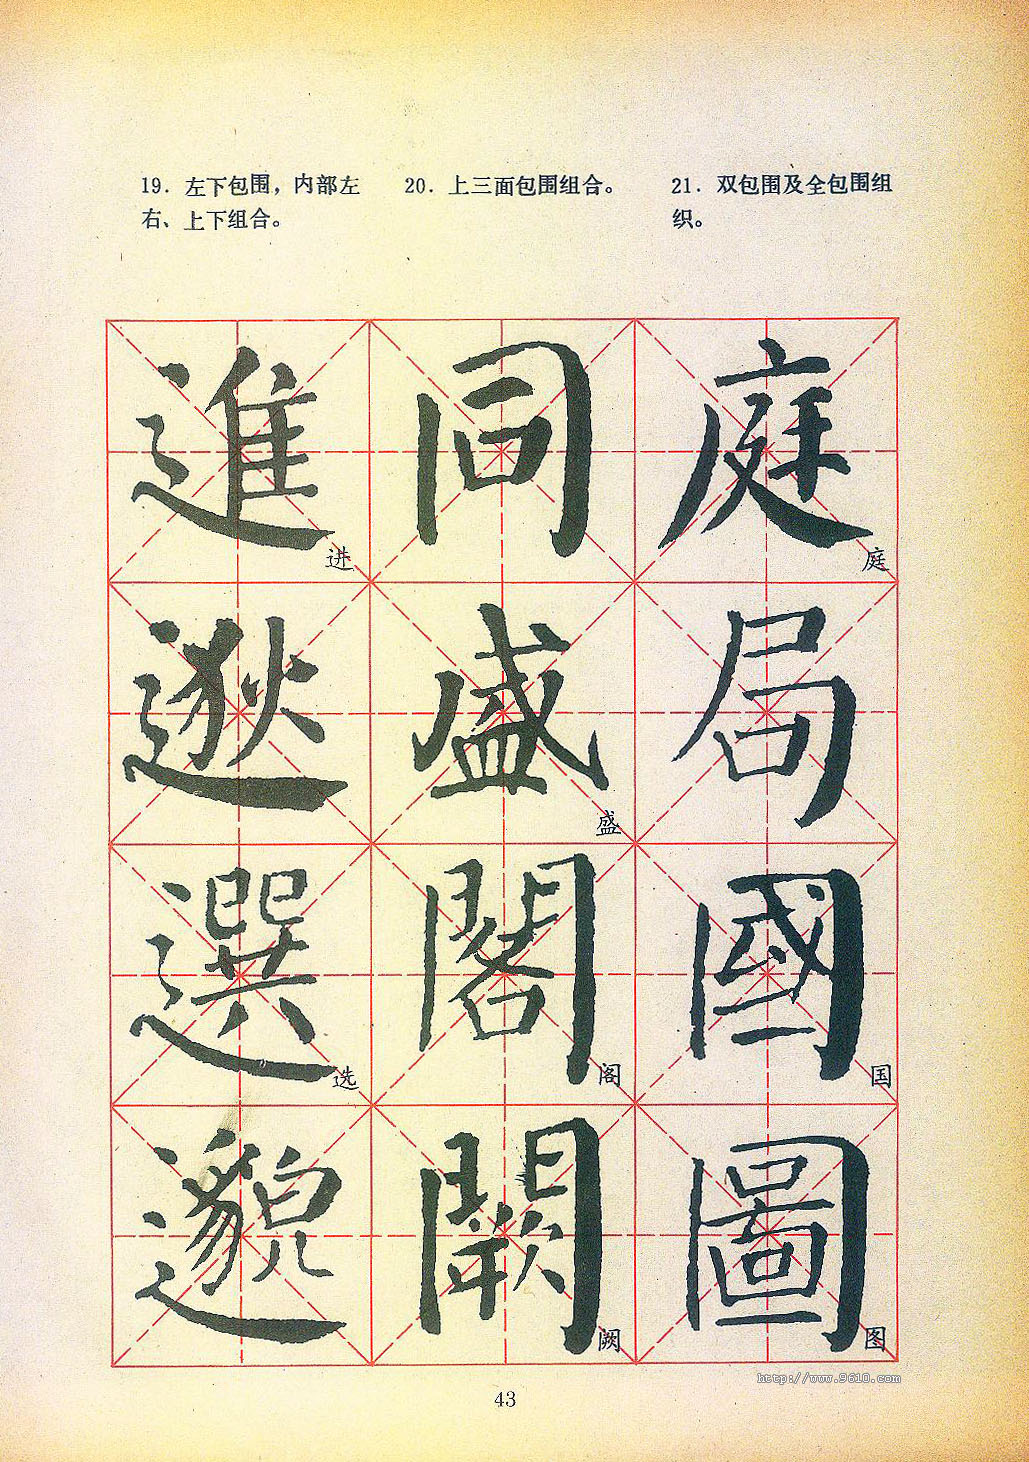 19. 左下包围，内部左
右、上下组合。
20. 上三面包围组合。
21. 双包围及全包围组
织。
進 同 庭
进 庭
逖 盛 局
盛
選 閣 國
选 阁 国
邈 闕 圖
阙 图
http://www.9610.com
43